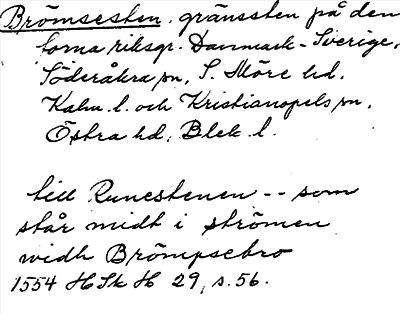 Brömsesten, gränssten på den
forna riksgr. Danmark - Sverige,
Söderåkra sn, S. Möre hd,
Kalm. l. och Kristianopels sn,
Östra hd, Blek. l.
till Runestenen -- som
står midt i strömen
widh Brömpsebro
1554 HSk H 29, s. 56.